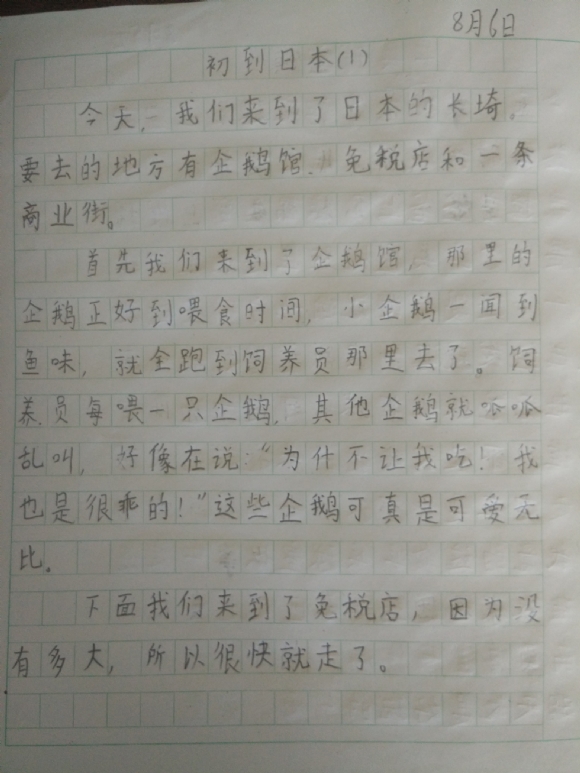 8月6日
初到日本(1)
今天,我们来到了日本的长埼。
要去的地方有企鹅馆、免税店和一条
商业街。
首先我们来到了企鹅馆,那里的
企鹅正好到喂食时间,小企鹅一闻到
鱼味,就全跑到饲养员那里去了。饲
养员每喂一只企鹅,其他企鹅就呱呱
乱叫,好像在说:“为什不让我吃!我
也是很乖的!”这些企鹅可真是可爱无
比。
下面我们来到了免税店,因为没
有多大,所以很快就走了。